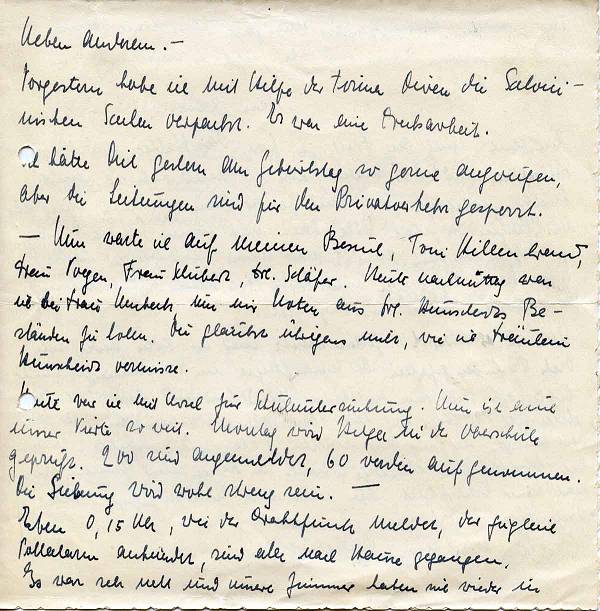 neben anderem. –
Vorgestern habe ich mit Hilfe der Firma die
nischen Säulen verpackt. Es war eine Dreckarbeit.
Ich hätte Dich gestern am Geburtstag so gerne angerufen,
aber die Leitungen sind für den Privatverkehr gesperrt.
— Nun warte ich auf meinen Besuch, Toni Hillenbrand,
Frau Frau Schubert, Frl. Schäfer. Heute nachmittag war
ich bei Frau um mir Noten aus Frl. Be-
ständen zu holen. Du glaubst übrigens nicht, wie ich Fräulein
vermisse.
Heute war ich mit zur Schuluntersuchung. Nun ist auch
unser so weit. Montag wird Helga in der Oberschule
geprüft. 200 sind angemeldet, 60 werden aufgenommen.
Die Siebung wird wohl streng sein. —
Eben 0,15 Uhr, wie der Drahtfunk meldet, der gleich
Vollalarm ankündet, sind alle nach Hause gegangen.
Es war sehr nett und unsere Zimmer haben sie wieder in